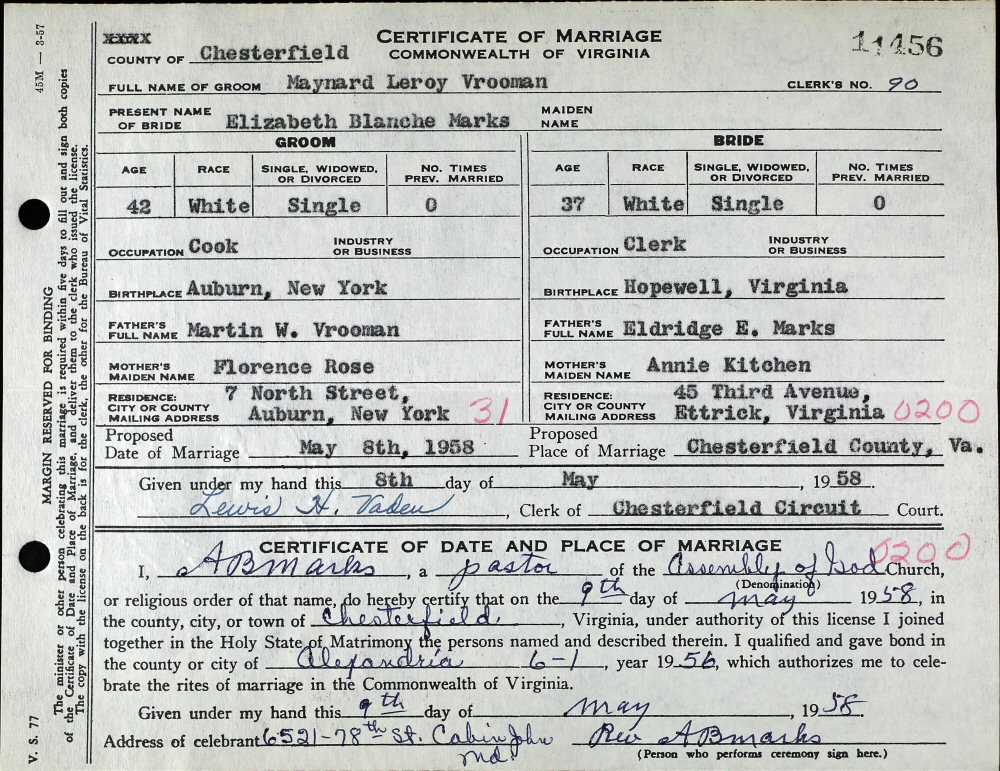 XXXX
CERTIFICATE OF MARRIAGE
11456
COUNTY OF Chesterfield COMMONWEALTH OF VIRGINIA
FULL NAME OF GROOM Maynard Leroy Vrooman CLERK'S NO. 90
PRESENT NAME OF BRIDE Elizabeth Blanche Marks MAIDEN NAME
GROOM BRIDE
AGE RACE SINGLE, WIDOWED, OR DIVORCED NO. TIMES PREV. MARRIED AGE RACE SINGLE, WIDOWED, OR DIVORCED NO. TIMES PREV. MARRIED
42 White Single 0 37 White Single 0
OCCUPATION Cook INDUSTRY OR BUSINESS OCCUPATION Clerk INDUSTRY OR BUSINESS
BIRTHPLACE Auburn, New York BIRTHPLACE Hopewell, Virginia
FATHER'S FULL NAME Martin W. Vrooman FATHER'S FULL NAME Eldridge E. Marks
MOTHER'S MAIDEN NAME Florence Rose MOTHER'S MAIDEN NAME Annie Kitchen
RESIDENCE: CITY OR COUNTY MAILING ADDRESS 7 North Street, Auburn, New York 31 RESIDENCE: CITY OR COUNTY MAILING ADDRESS 45 Third Avenue, Ettrick, Virginia 0200
Proposed Date of Marriage May 8th, 1958 Proposed Place of Marriage Chesterfield County, Va.
Given under my hand this 8th day of May, 1958
Lewis H. Vaden, Clerk of Chesterfield Circuit Court.
CERTIFICATE OF DATE AND PLACE OF MARRIAGE 0200
I, A B Marks, a pastor of the Assembly of God Church,
(Denomination)
or religious order of that name, do hereby certify that on the 9th day of May 1958, in
the county, city, or town of Chesterfield, Virginia, under authority of this license I joined
together in the Holy State of Matrimony the persons named and described therein. I qualified and gave bond in
the county or city of Alexandria 6-1, year 1956, which authorizes me to cele-
brate the rites of marriage in the Commonwealth of Virginia.
Given under my hand this 9th day of May, 1958
Address of celebrant 6521-78th St. Cabin John Md. Rev A B Marks
(Person who performs ceremony sign here.)
45M — 3-57
MARGIN RESERVED FOR BINDING
The minister or other person celebrating this marriage is required within five days to fill out and sign both copies
of the Certificate of Date and Place of Marriage, and deliver them to the clerk who issued the license.
The copy with the license on the back is for the clerk, the other for the Bureau of Vital Statistics.
V. S. 77